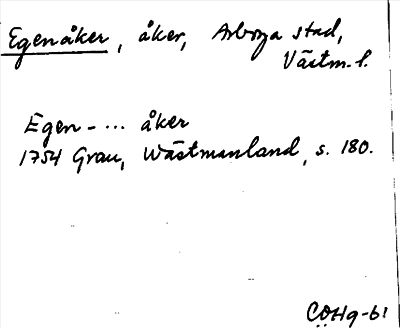 Egenåker, åker, Arboga stad,
Västm. l.
Egen- ... åker
1754 Grau, Wästmanland, s. 180.
CÖHg-61